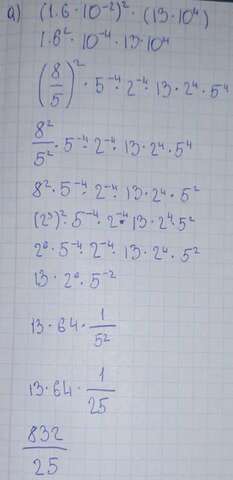 a) (1.6 · 10⁻²)² · (13 · 10⁴)
1.6² · 10⁻⁴ · 13 · 10⁴
(8/5)² · 5⁻⁴ · 2⁻⁴ · 13 · 2⁴ · 5⁴
8²/5² · 5⁻⁴ · 2⁻⁴ · 13 · 2⁴ · 5⁴
8² · 5⁻⁴ · 2⁻⁴ · 13 · 2⁴ · 5²
(2³)² · 5⁻⁴ · 2⁻⁴ · 13 · 2⁴ · 5²
2⁶ · 5⁻⁴ · 2⁻⁴ · 13 · 2⁴ · 5²
13 · 2⁶ · 5⁻²
13 · 64 · 1/5²
13 · 64 · 1/25
832/25